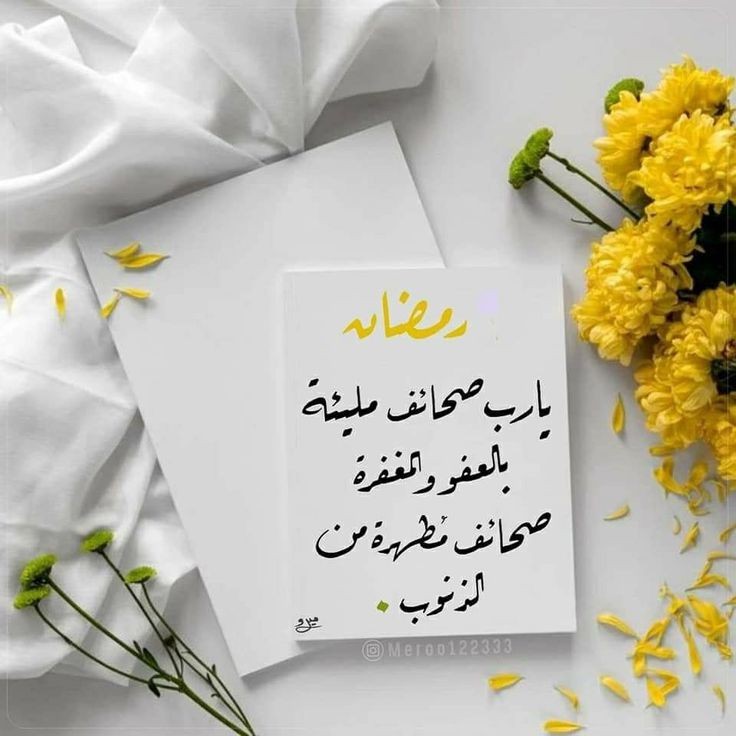 رمضان
يارب صحائف مليئة
بالعفو والمغفرة
صحائف مُطهرة من
الذنوب.
ميرو
Meroo122333